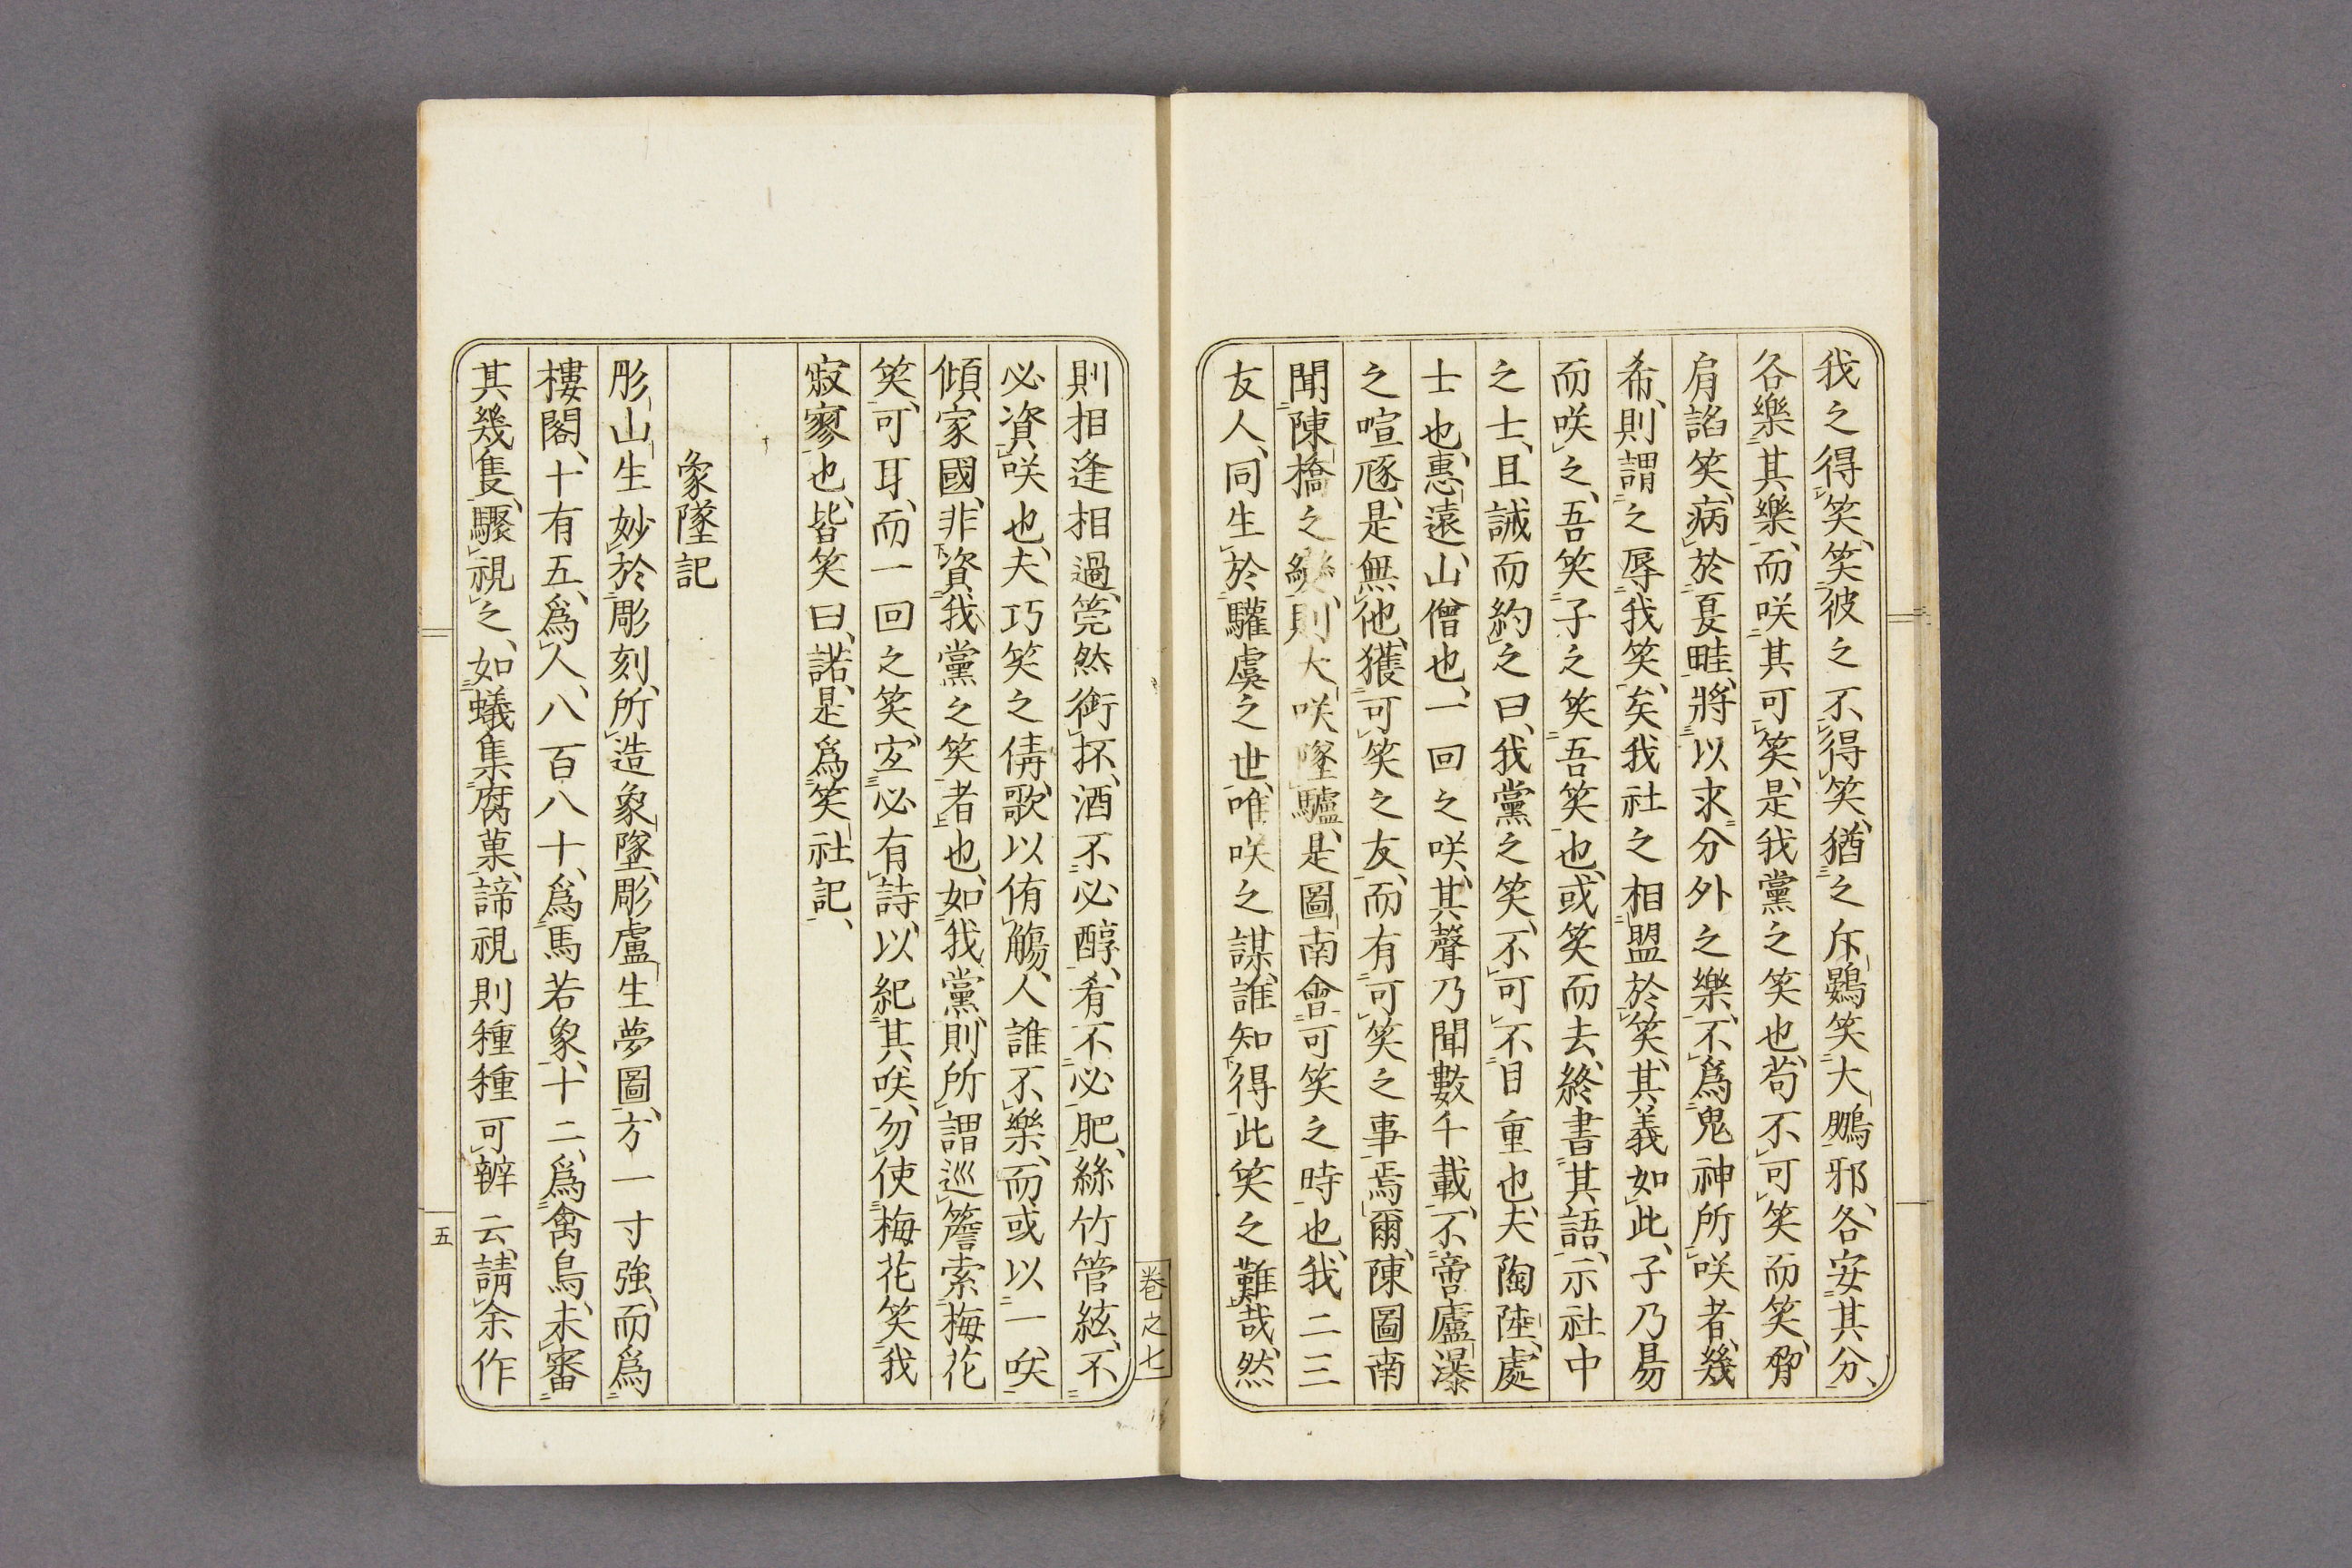 我之得笑、笑彼之不得笑、猶之斥鷃笑大鵬邪、各安其分、
各樂其樂、而咲其可笑、是我黨之笑也、苟不可笑而笑、脅
肩諂笑、病於夏畦、將以求分外之樂、不爲鬼神所咲者、幾
希、則謂之辱我笑、矣、我社之相盟於笑、其義如此、子乃昜
而咲之、吾笑子之笑吾笑也、或笑而去、終書其語、示社中
之士、且誡而約之曰、我黨之笑、不可不目重也、夫陶陸、處
士也、惠遠、山僧也、一回之咲、其聲乃聞數千載、不啻廬瀑
之喧豗、是無他、獲可笑之友、而有可笑之事焉爾、陳圖南
聞陳橋之變、則大咲墜驢、是圖南會可笑之時也、我二三
友人、同生於驩虞之世、唯咲之謀、誰知得此笑之難哉、然
則相逢相過、筦然銜抔、酒不必醇、肴不必肥、絲竹管絃、不
必資咲也、夫巧笑之倩、歌以侑觴、人誰不樂、而或以一咲、
傾家國、非資我黨之笑者也、如我黨、則所謂巡簷索梅花
笑、可耳、而一回之笑、宐必有詩、以紀其咲、勿使梅花笑我
寂寥也、皆笑曰、諾、是爲笑社記、
象墜記
彤山生妙於彫刻、所造象墜、彫盧生夢圖、方一寸強、而爲
樓閣、十有五、爲人、八百八十、爲馬若象、十二、爲禽鳥、未審
其幾隻、驟視之、如蟻集腐菓、諦視則種種可辧云、請余作
卷之七
五